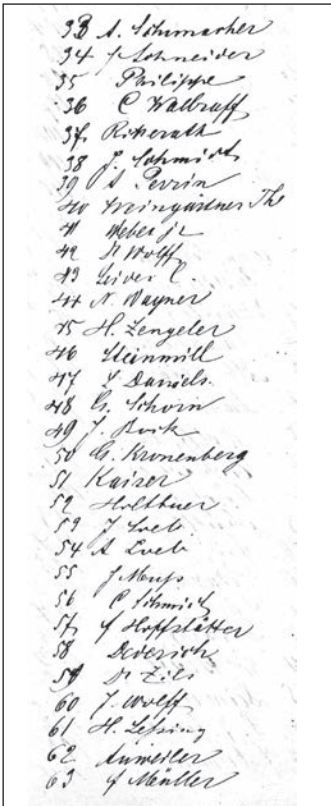 33 A. Schumacher
34 J Schneider
35 Philippe
36 C Walbraff
37 Ritterath
38 J. Schmidt
39 A Perrin
40 Weingärtner Th
41 Weber jr
42 Wolff
43
44 N. Wagner
45 H. Zengeler
46 Steinmill
47 L Daniels.
48 Schorn
49 J. Bock
50 Kronenberg
51 Kaiser
52
53 J Loeb
54 A Loeb
55 J
56 C Schmidt
57 J Hoffstätter
58 Dederich
59 Dr Zils
60 J. Wolff
61 H. Lessing
62 Anweiler
63 J Müller